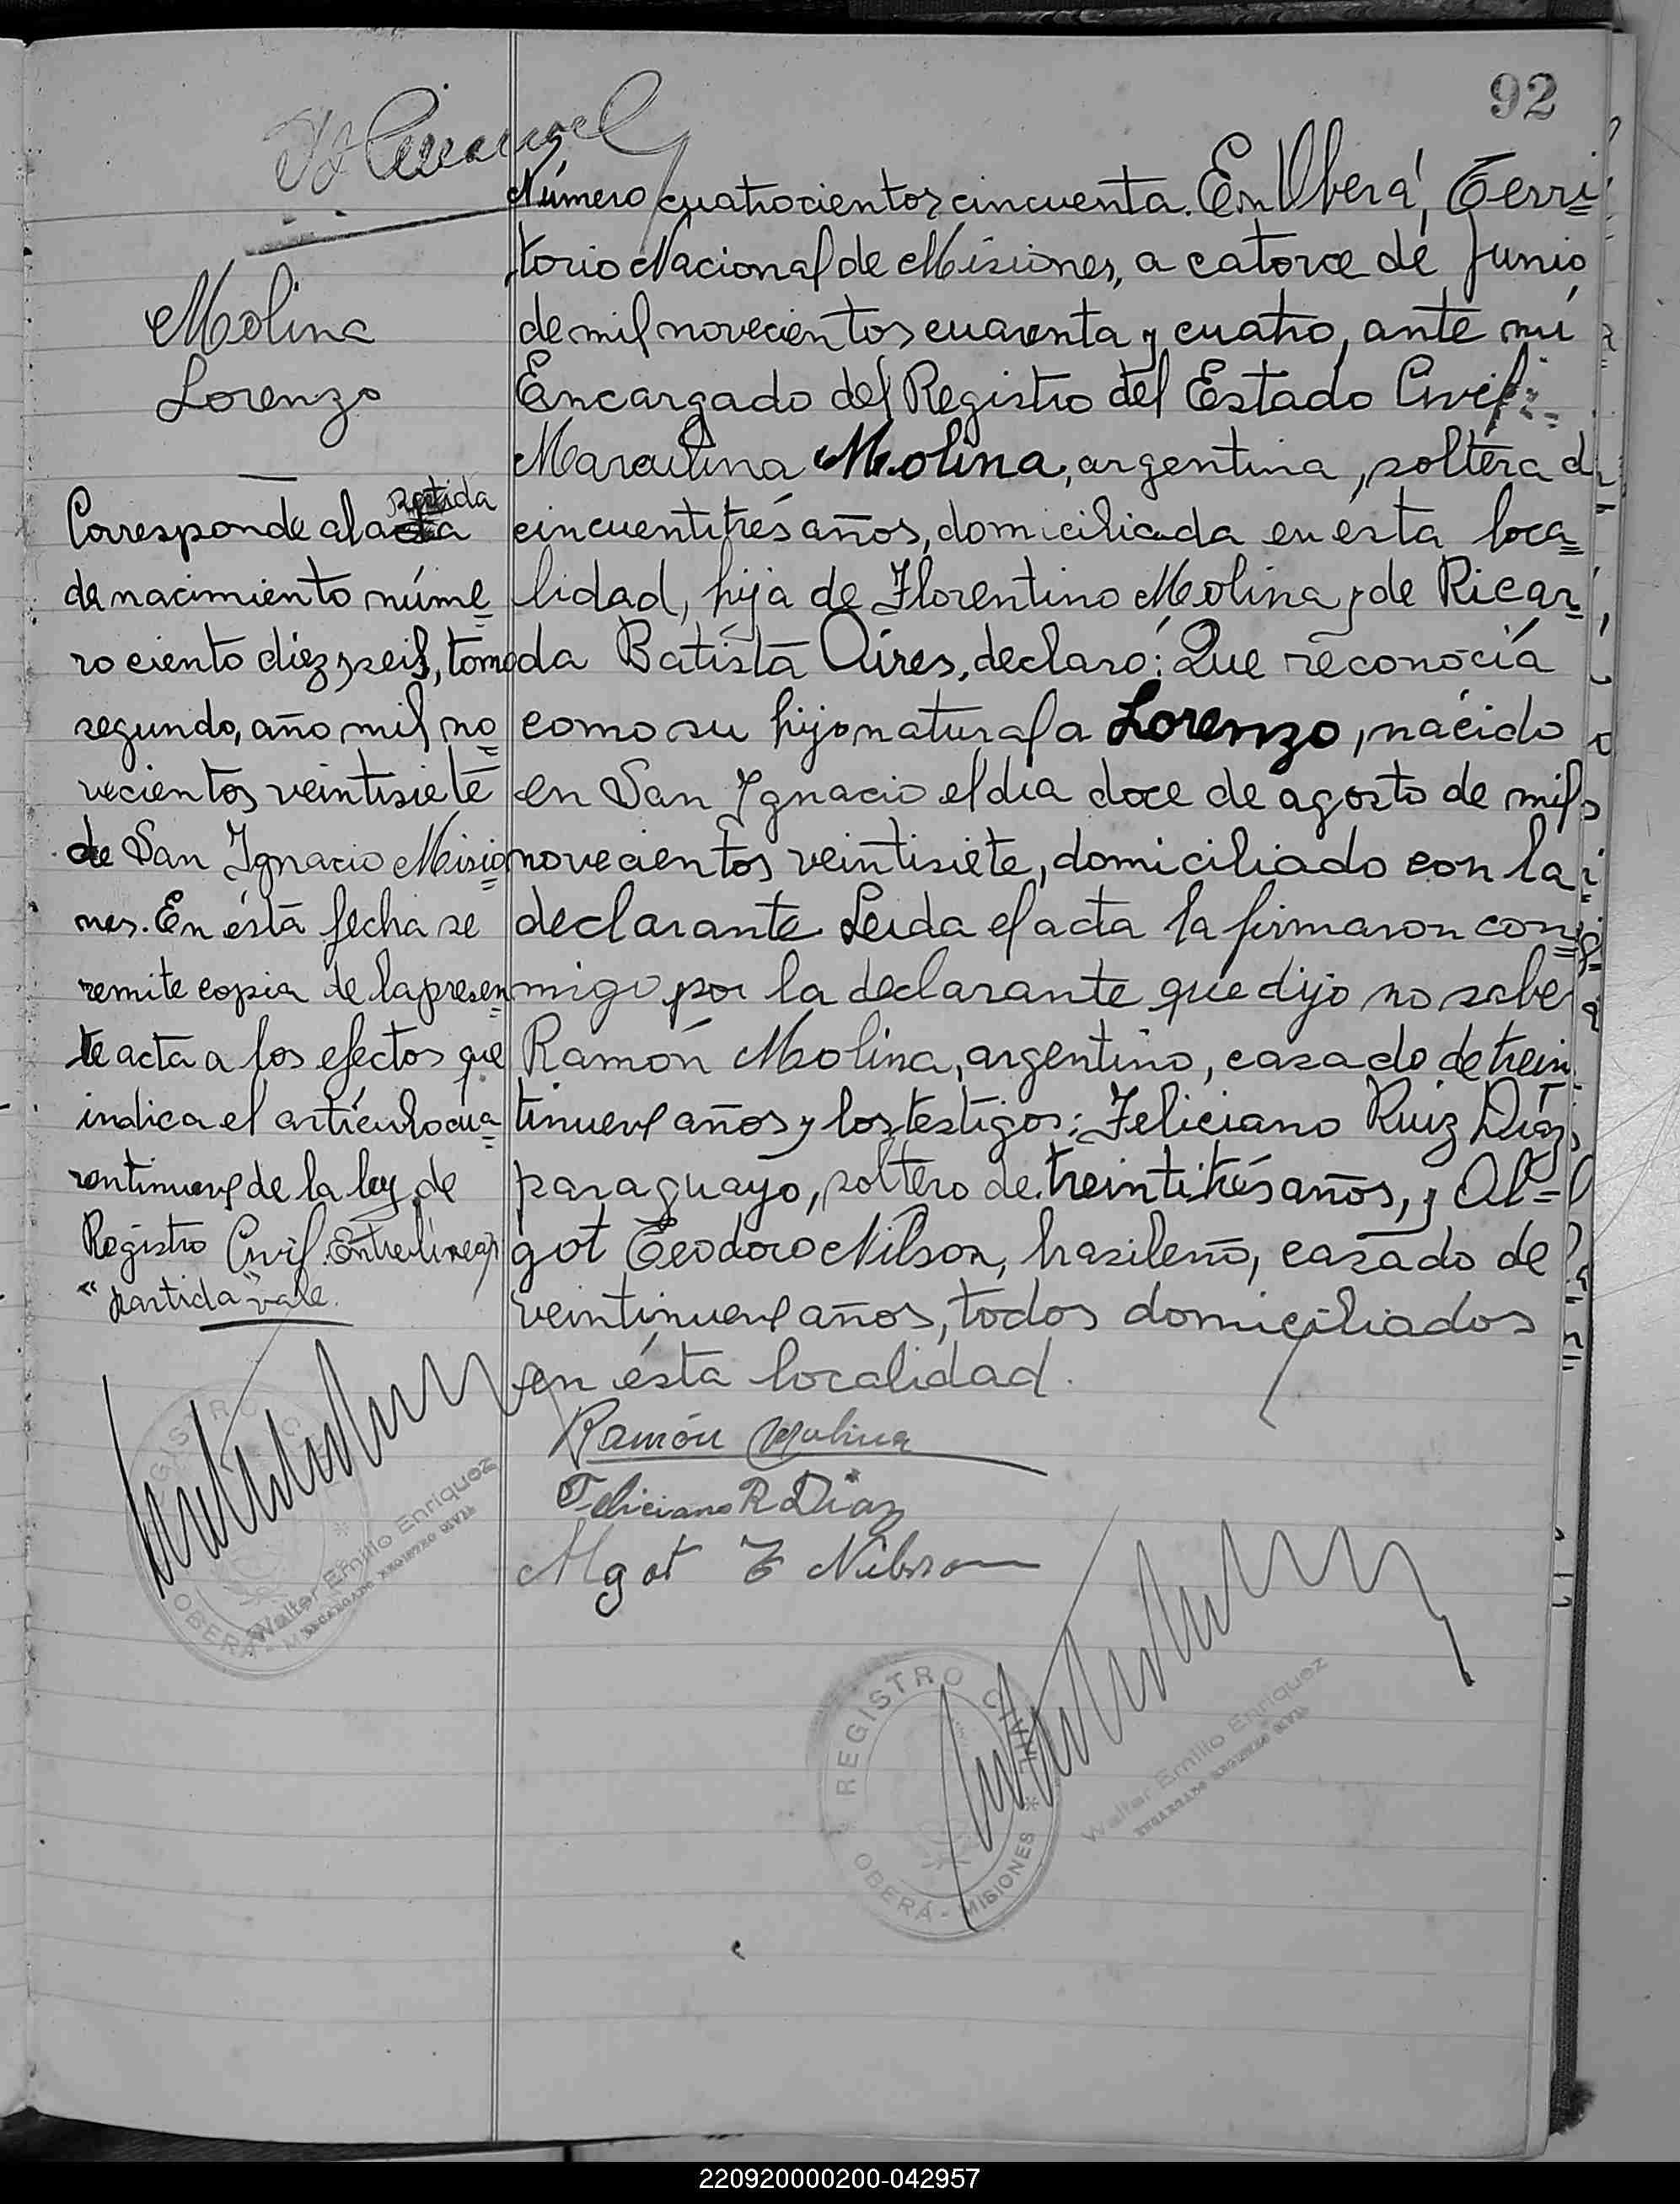 92
Molina
Lorenzo
Corresponde a la acta
partida
de nacimiento núme=
ro ciento diez y seis, tomo
segundo, año mil no=
vecientos veintisiete
de San Ignacio Misio=
nes. En ésta fecha se
remite copia de la presen=
te acta a los efectos que
indica el artículo cua=
rentinueve de la ley de
Registro Civil. Entrelíneas
"partida" vale.
REGISTRO CIVIL
OBERÁ - MISIONES
Walter Emilio Enriquez
ENCARGADO REGISTRO CIVIL
Número cuatrocientos cincuenta. En Oberá, Terri=
torio Nacional de Misiones, a catorce de Junio
de mil novecientos cuarenta y cuatro, ante mí
Encargado del Registro del Estado Civil:
Molina, argentina, soltera d
cincuentitrés años, domiciliada en esta loca=
lidad, hija de Florentino Molina y de Ricar=
da Batista Aires, declaró: Que reconocía
como su hijo natural a Lorenzo, nacido
en San Ignacio el día doce de agosto de mil
novecientos veintisiete, domiciliado con la
declarante. Leida el acta la firmaron con=
migo por la declarante que dijo no saber
Ramón Molina, argentino, casado de trein
tinueve años y los testigos: Feliciano Ruiz Díaz,
paraguayo, soltero de treintitrés años, y Al=
got Teodoro Nilson, brasileño, casado de
veintinueve años, todos domiciliados
en ésta localidad.
Ramón Molina
Feliciano R Diaz
Algot T Nilsson
REGISTRO CIVIL
OBERÁ - MISIONES
Walter Emilio Enriquez
ENCARGADO REGISTRO CIVIL
220920000200-042957